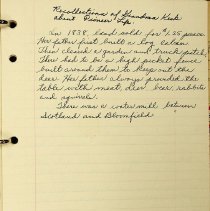 Recollections of Grandma Kirk
about Pioneer Life
In 1838, land sold for $1.25 peracre.
Her father first built a log cabin
Then cleared a garden and truck patch.
There had to be a high picket fence
built around them to keep out the
deer. Her father always provided the
table with meat, deer, bear, rabbits
and squirrels.
There was a water mill between
Scotland and Bloomfield